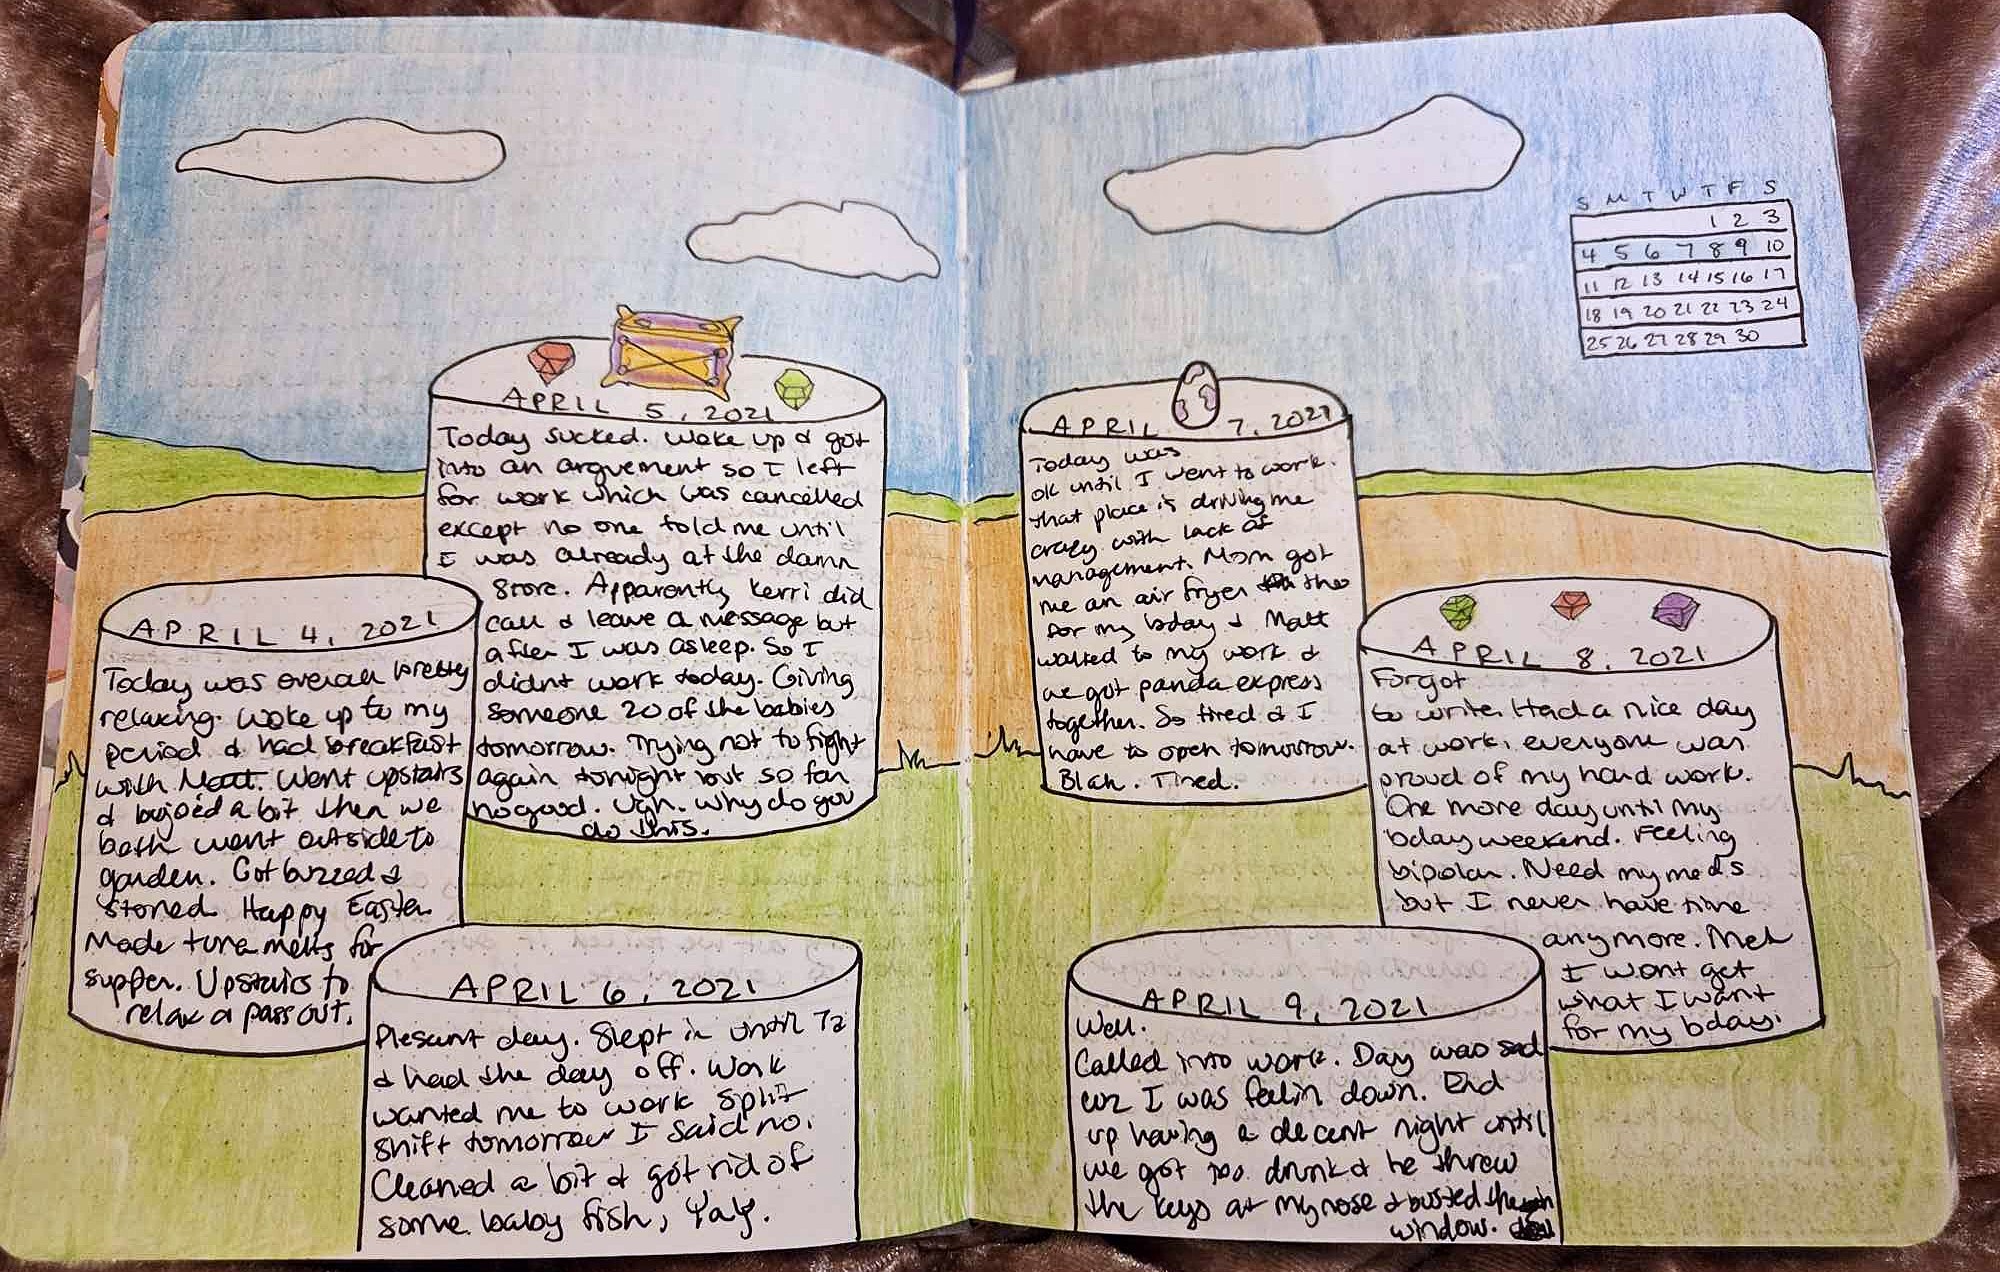 APRIL 4, 2021
Today was overall pretty
relaxing. Woke up to my
period & had breakfast
with Matt. Went upstairs
& a bit then we
both went outside to
garden. Got buzzed &
stoned. Happy Easter.
Made tuna melts for
supper. Upstairs to
relax a pass out.
APRIL 5, 2021
Today sucked. Woke up & got
into an arguement so I left
for work which was cancelled
except no one told me until
I was already at the damn
store. Apparently Kerri did
call & leave a message but
after I was asleep. So I
didnt work today. Giving
someone 20 of the babies
tomorrow. Trying not to fight
again tonight but so far
no good. Ugh. Why do you
do this.
APRIL 6, 2021
Plesant day. Slept in until
& had the day off. Work
wanted me to work split
shift tomorrow I said no.
Cleaned a bit & got rid of
some baby fish, Yay.
S M T W T F S
1 2 3
4 5 6 7 8 9 10
11 12 13 14 15 16 17
18 19 20 21 22 23 24
25 26 27 28 29 30
APRIL 7, 2021
Today was
ok until I went to work.
that place is driving me
crazy with lack of
management. Mom got
me an air fryer
for my bday & Matt
walked to my work &
we got panda express
together. So tired & I
have to open tomorrow.
Blah. Tired.
APRIL 8, 2021
Forgot
to write. Had a nice day
at work, everyone was
proud of my hard work.
One more day until my
bday weekend. Feeling
bipolar. Need my meds
but I never have time
anymore. Meh
I wont get
what I want
for my bday.
APRIL 9, 2021
Well.
Called into work. Day was sad
cuz I was feelin down. End
up having a decent night until
we got too drunk & he threw
the keys at my nose & busted the
window.